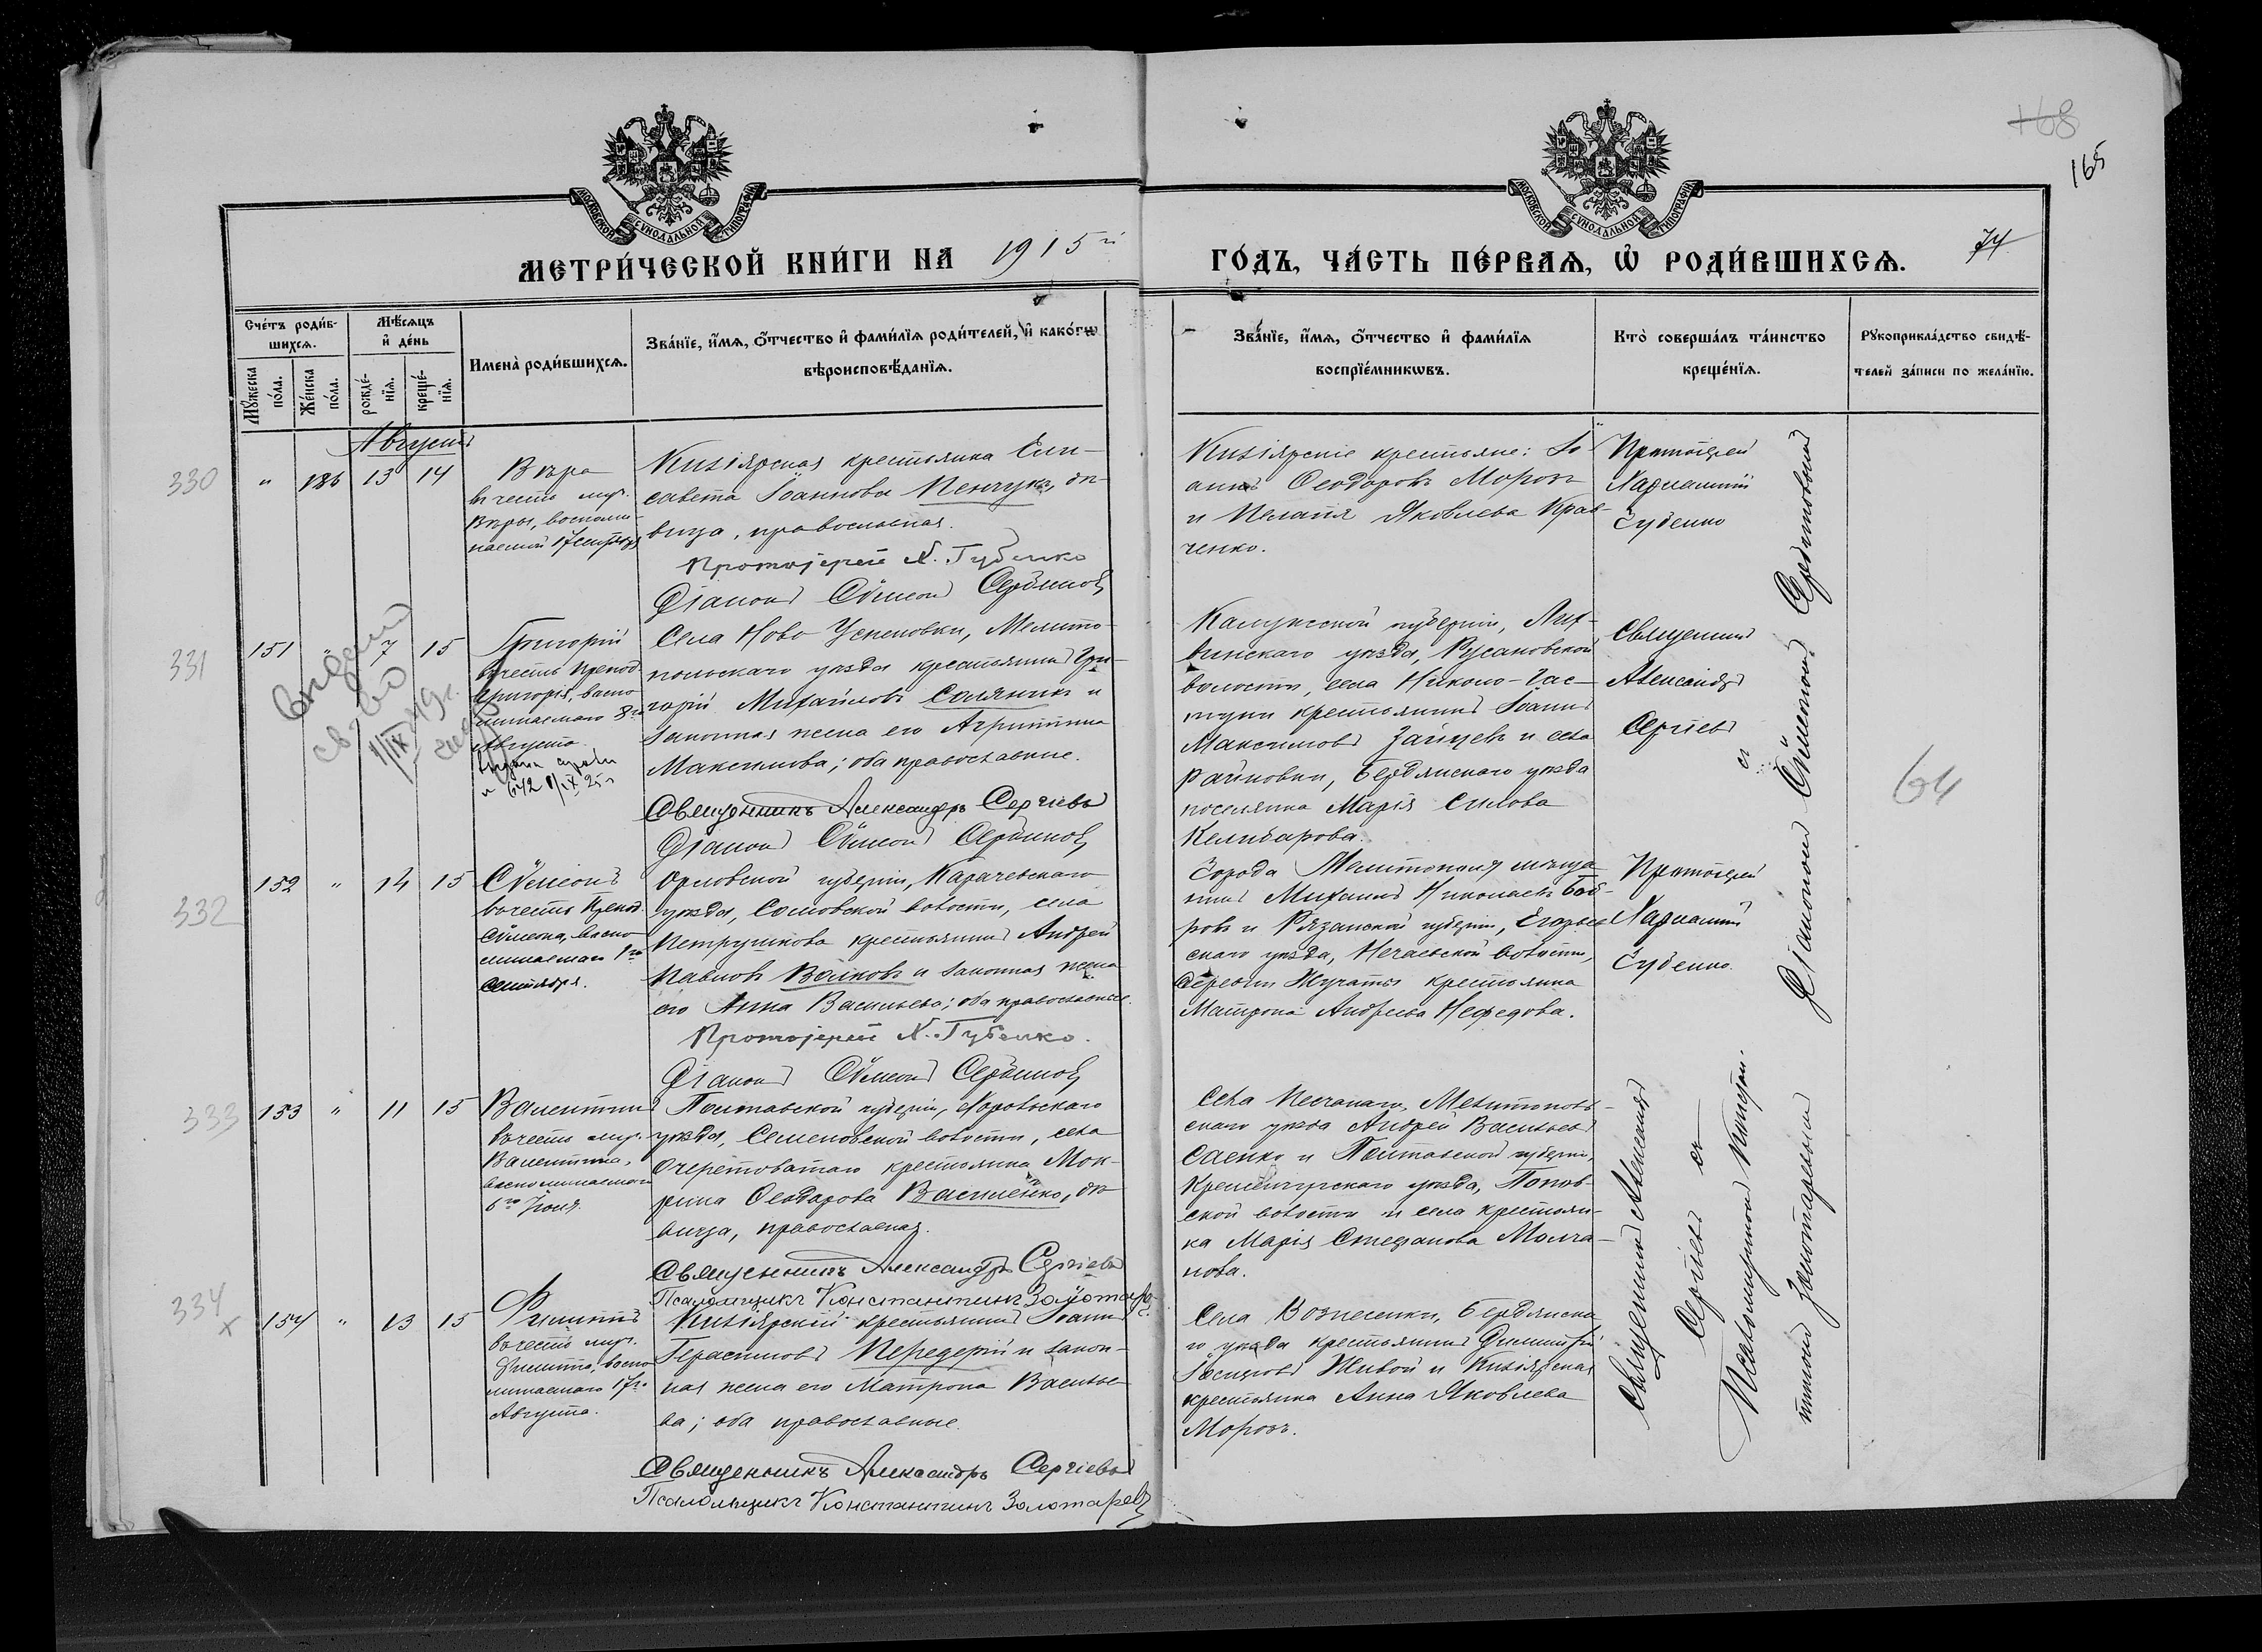 168
165
74
МОСКОВСКОЙ СѴНОДАЛЬНОЙ ТИПОГРАФІИ
МОСКОВСКОЙ СѴНОДАЛЬНОЙ ТИПОГРАФІИ
МЕТРИ́ЧЕСКОЙ КНИ́ГИ НА 1915й
ГО́ДЪ, ЧА́СТЬ ПЕ́РВАѦ, Ѡ РОДИ́ВШИХСѦ.
Сче́тъ роди́в-
шихсѧ.
Мꙋ́жеска по́ла.
Же́нска по́ла.
Мѣ́сѧцъ
и де́нь
рожде́-
нїѧ.
креще́-
нїѧ.
Имена̀ роди́вшихсѧ.
Зва́нїе, и́мѧ, ѻ́тчество и фами́лїѧ роди́телей, и како́гѡ
вѣроисповѣ́данїѧ.
Зва́нїе, и́мѧ, ѻ́тчество и фами́лїѧ
воспрїе́мникѡвъ.
Кто̀ соверша́лъ та́инство
креще́нїѧ.
Рꙋкоприкла́дство свидѣ́-
телей за́писи по жела́нїю.
Августъ
330
" 186 13 14
Вѣра
въ честь муч.
Вѣры, воспоми-
наемой 17 Сентября
Кизіярская крестьянка Ели-
савета Іоаннова Пенчукъ, дѣ-
вица, православная.
Протоіерей Х. Губенко
Діаконъ Сѵмеонъ Сербиновъ
Кизіярскіе крестьяне: Іо-
аннъ Ѳеодоровъ Морозъ
и Пелагія Яковлева Крав-
ченко.
Протоіерей
Харлампій
Губенко
331
151 " 7 15
Григорій
въ честь Препод.
Григорія, воспо-
минаемаго 8го
Августа.
Села Ново Успеновки, Мелито-
польскаго уѣзда крестьянинъ Гри-
горій Михайловъ Соляникъ и
законная жена его Агриппина
Максимова; оба православные.
Священникъ Александръ Сергіевъ
Діаконъ Сѵмеонъ Сербиновъ
Калужской губерніи, Лих-
винскаго уѣзда, Русановской
волости, села Николо-Гас-
туни крестьянинъ Іоаннъ
Максимовъ Зайцевъ и села
Райновки, Бердянскаго уѣзда
поселянка Марія Силова
Келибарова.
Священникъ
Александръ
Сергіевъ
съ
332
152 " 14 15
Сѵмеонъ
въ честь Препод.
Сѵмеона, воспо-
минаемаго 1го
Сентября.
Орловской губерніи, Карачевскаго
уѣзда, Сомовской волости, села
Петрушкова крестьянинъ Андрей
Павловъ Волковъ и законная жена
его Анна Васильева; оба православные.
Протоіерей Х. Губенко.
Діаконъ Сѵмеонъ Сербиновъ
Города Мелитополя мѣща-
нинъ Михаилъ Николаевъ Боб-
ровъ и Рязанской губерніи, Егорьев-
скаго уѣзда, Нечаевской волости,
деревни Жучаты крестьянка
Матрона Андреева Нефедова.
Протоіерей
Харлампій
Губенко.
Діакономъ Сѵмеономъ Сербиновымъ
333
153 " 11 15
Валентинъ
въ честь муч.
Валентина,
воспоминаемаго
6го Іюля.
Полтавской губерніи, Хорольскаго
уѣзда, Семеновской волости, села
Очеретоватаго крестьянка Мок-
рина Ѳеодорова Василенко, дѣ-
вица, православная.
Священникъ Александръ Сергіевъ
Псаломщикъ Константинъ Золотаревъ
Села Песчанаго, Мелитополь-
скаго уѣзда Андрей Васильевъ
Саенко и Полтавской губерніи,
Кременчугскаго уѣзда, Попов-
ской волости и села крестьян-
ка Марія Стефанова Молча-
нова.
334 х
154 " 13 15
Филиппъ
въ честь муч.
Филиппа, воспо-
минаемаго 17го
Августа.
Кизіярскій крестьянинъ Іоаннъ
Герасимовъ Передерій и закон-
ная жена его Матрона Василье-
ва; оба православные.
Священникъ Александръ Сергіевъ
Псаломщикъ Константинъ Золотаревъ
Села Вознесенки, Бердянска-
го уѣзда крестьянинъ Димитрій
Іосифовъ Живой и Кизіярская
крестьянка Анна Яковлева
Морозъ.
Священникъ Александръ
Сергіевъ съ
Псаломщикомъ Констан-
тиномъ Золотаревымъ
64